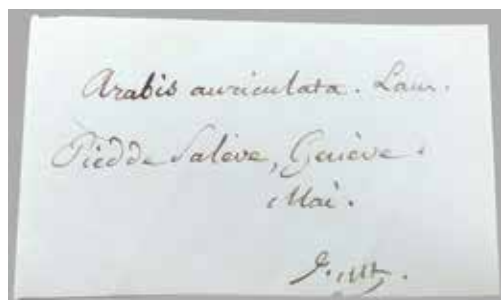 Arabis auriculata. Lam.
Pied de Salève, Genève.
Mai.